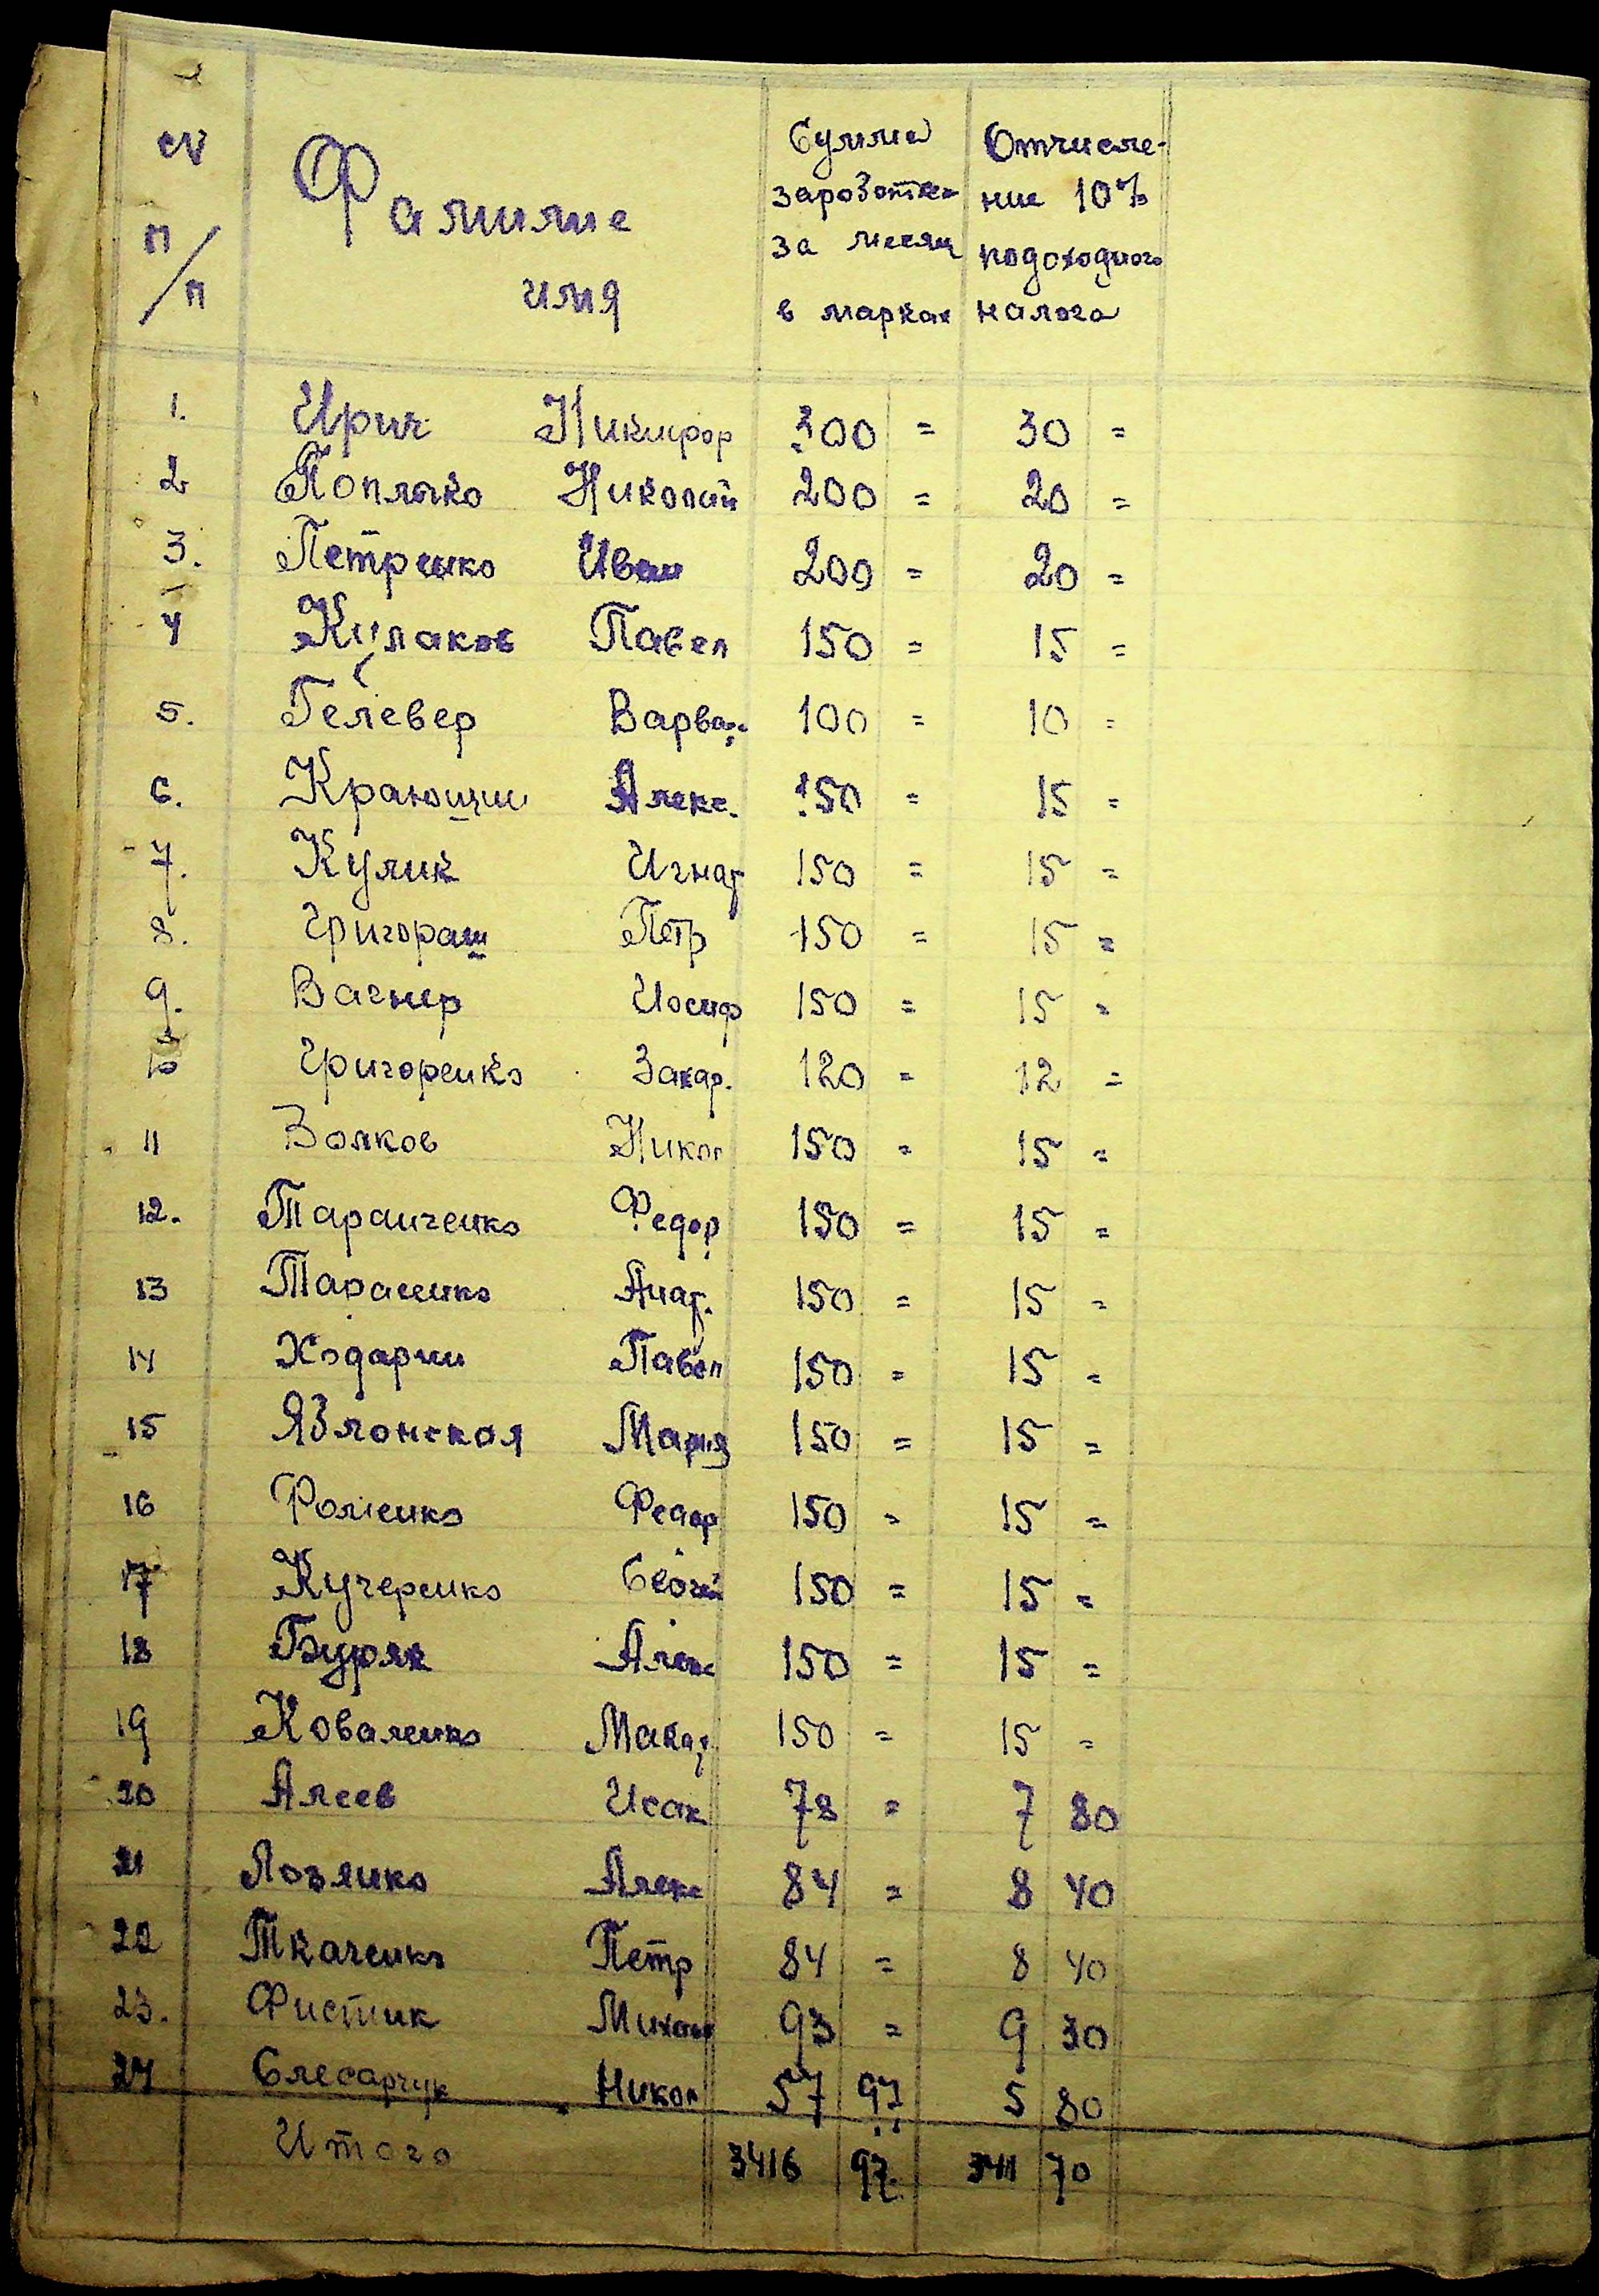 № п/п Фамилие имя Сумма заработка за месяц в марках Отчисле-ние 10% подоходного налога
1. Ирич Никифор 300 = 30 =
2 Поплыко Николай 200 = 20 =
3. Петренко Иван 200 = 20 =
4 Кулаков Павел 150 = 15 =
5. Гелевер Варвар. 100 = 10 =
6. Краюшин Алекс. 150 = 15 =
7. Кулик Игнат 150 = 15 =
8. Григораш Петр 150 = 15 =
9. Вагнер Иосиф 150 = 15 =
10 Григоренко Захар. 120 = 12 =
11 Волков Никол 150 = 15 =
12. Таранченко Федор 150 = 15 =
13 Тарасенко 150 = 15 =
14 Ходарин Павел 150 = 15 =
15 Яблонская Мария 150 = 15 =
16 Фоменко Федор 150 = 15 =
17 Кучеренко 150 = 15 =
18 Буряк Алекс 150 = 15 =
19 Коваленко Макар 150 = 15 =
20 Алеев Исак 78 = 7 80
21 Лозянко Алекс 84 = 8 40
22 Ткаченко Петр 84 = 8 40
23. Фистик Михаил 93 = 9 30
24 Слесарчук Никол 57 97 5 80
Итого 3416 97 341 70